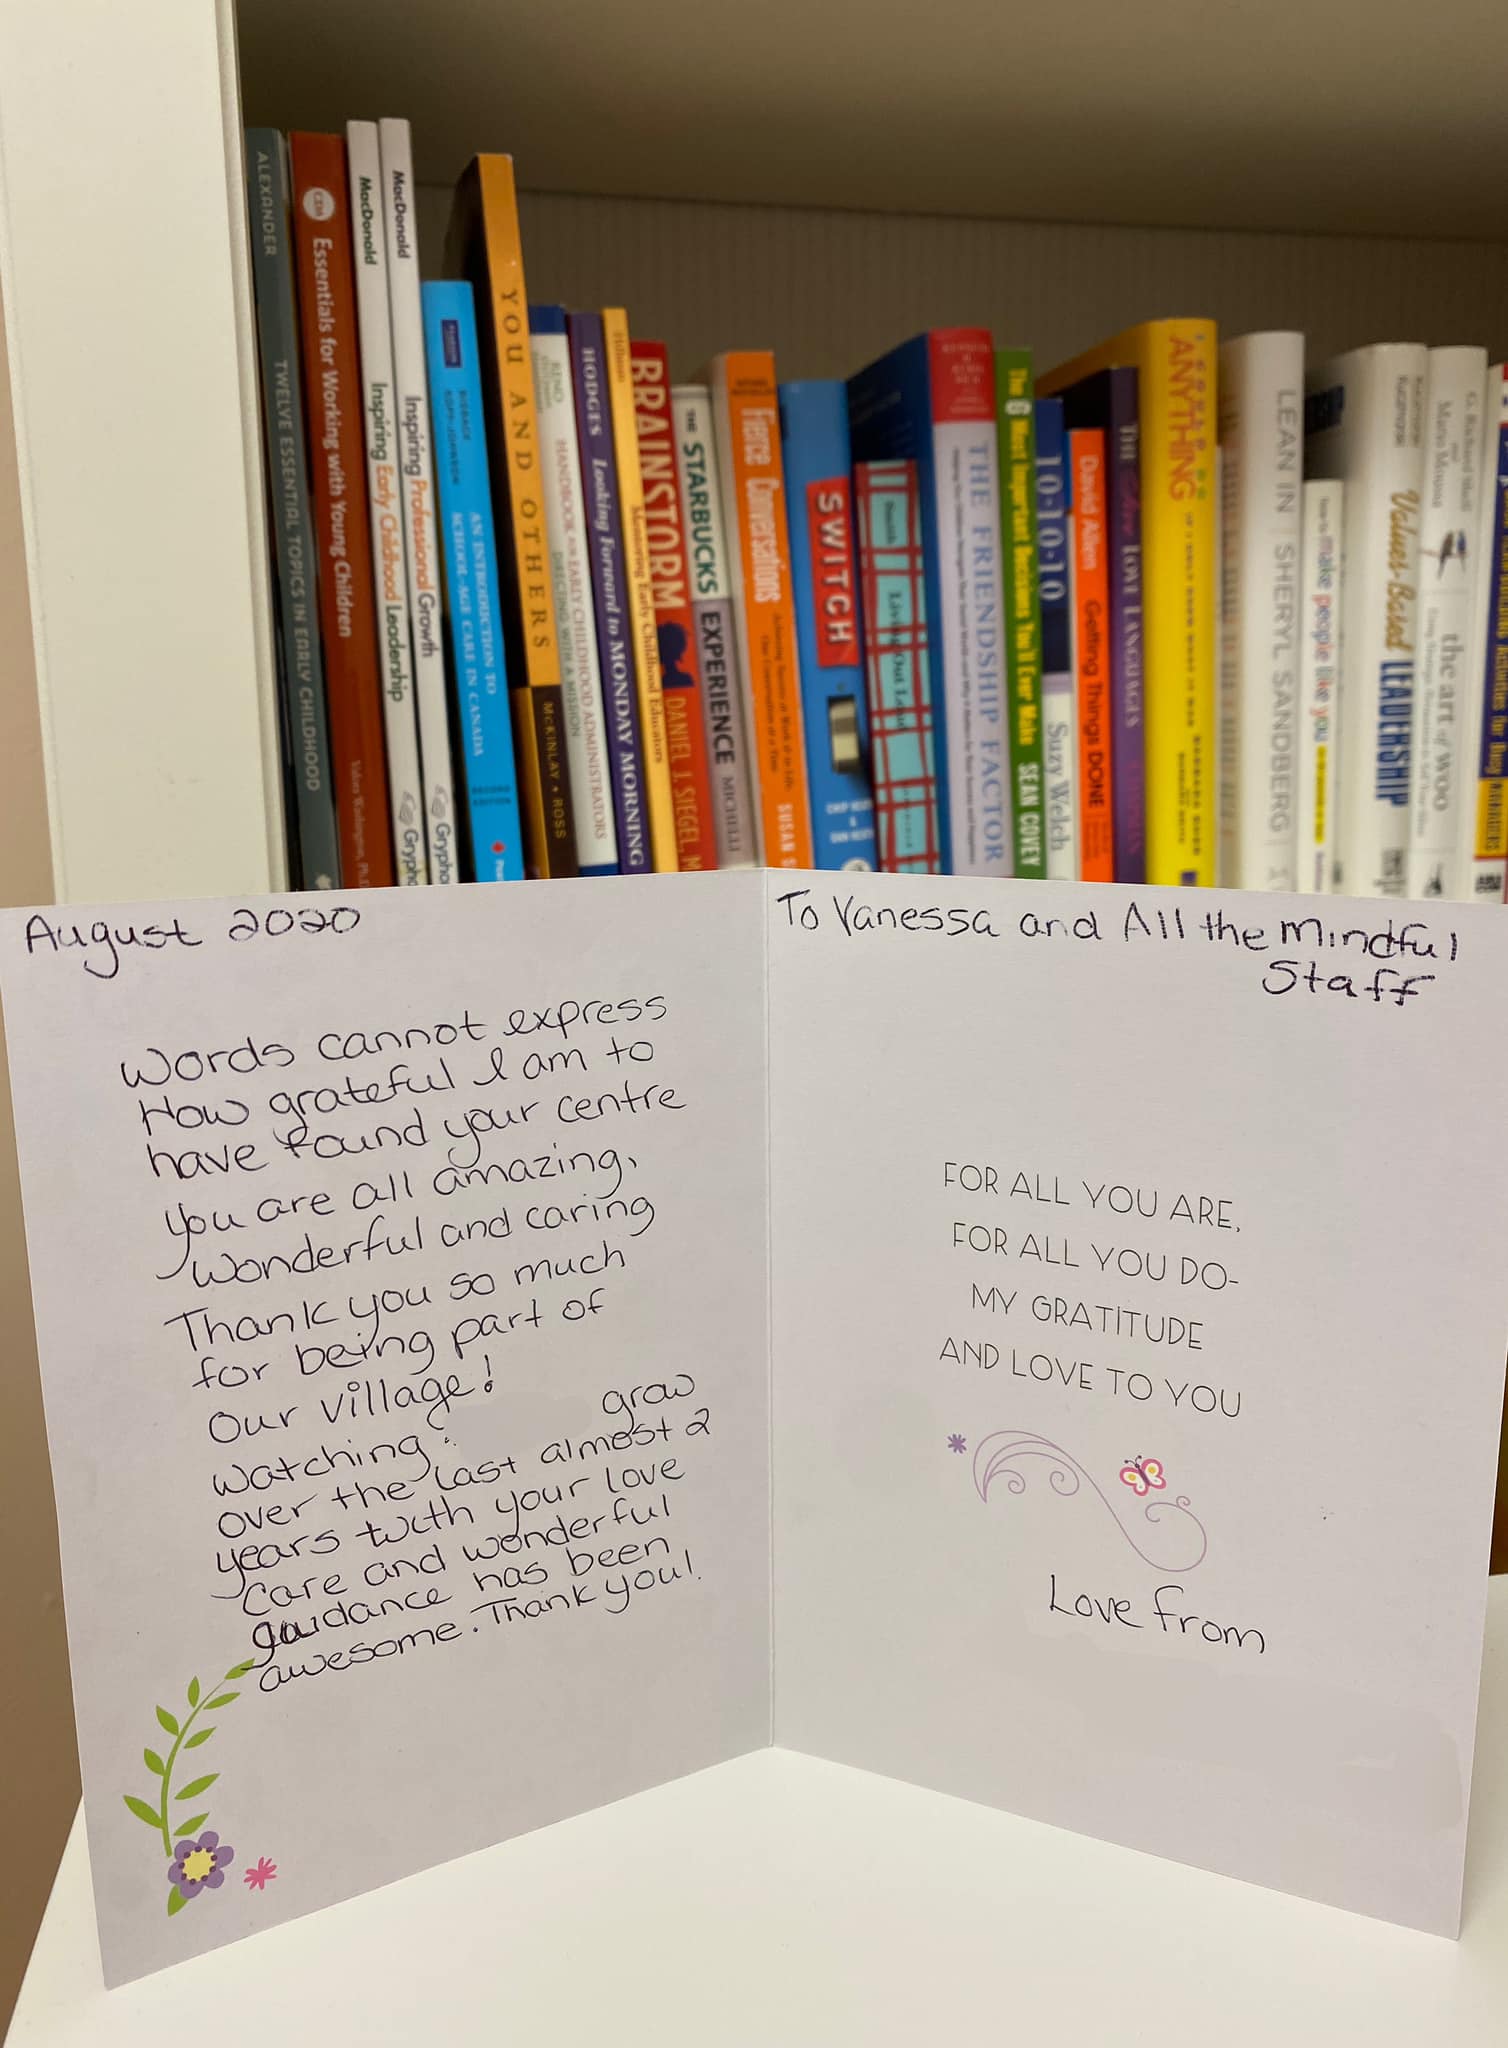 ALEXANDER TWELVE ESSENTIAL TOPICS IN EARLY CHILDHOOD
Essentials for Working with Young Children
MacDonald Inspiring Early Childhood Leadership Grypho
MacDonald Inspiring Professional Growth Grypho
AN INTRODUCTION TO SCHOOL-AGE CARE IN CANADA SECOND EDITION
YOU AND OTHERS McKINLAY • ROSS
HANDBOOK AN EARLY CHILDHOOD ADMINISTRATORS DIRECTING WITH A MISSION
HODGES Looking Forward to MONDAY MORNING
Mentoring Early Childhood Educators
BRAINSTORM DANIEL J. SIEGEL, M
THE STARBUCKS EXPERIENCE MICHELLI
Fierce Conversations SUSAN S
SWITCH CHIP HEATH & DAN HEATH
Living Out Loud
THE FRIENDSHIP FACTOR
The 6 Most Important Decisions You'll Ever Make SEAN COVEY
10-10-10 Suzy Welch
David Allen Getting Things DONE
THE LOVE LANGUAGES
ANYTHING
LEAN IN SHERYL SANDBERG
how to make people like you
Values-Based LEADERSHIP
G. Richard Shell and Mario Moussa the art of WOO
August 2020
Words cannot express
How grateful I am to
have found your centre
you are all amazing,
wonderful and caring
Thank you so much
for being part of
our village!
watching grow
over the last almost 2
years with your love
care and wonderful
guidance has been
awesome. Thank you!
To Vanessa and All the Mindful
Staff
FOR ALL YOU ARE,
FOR ALL YOU DO-
MY GRATITUDE
AND LOVE TO YOU
Love from